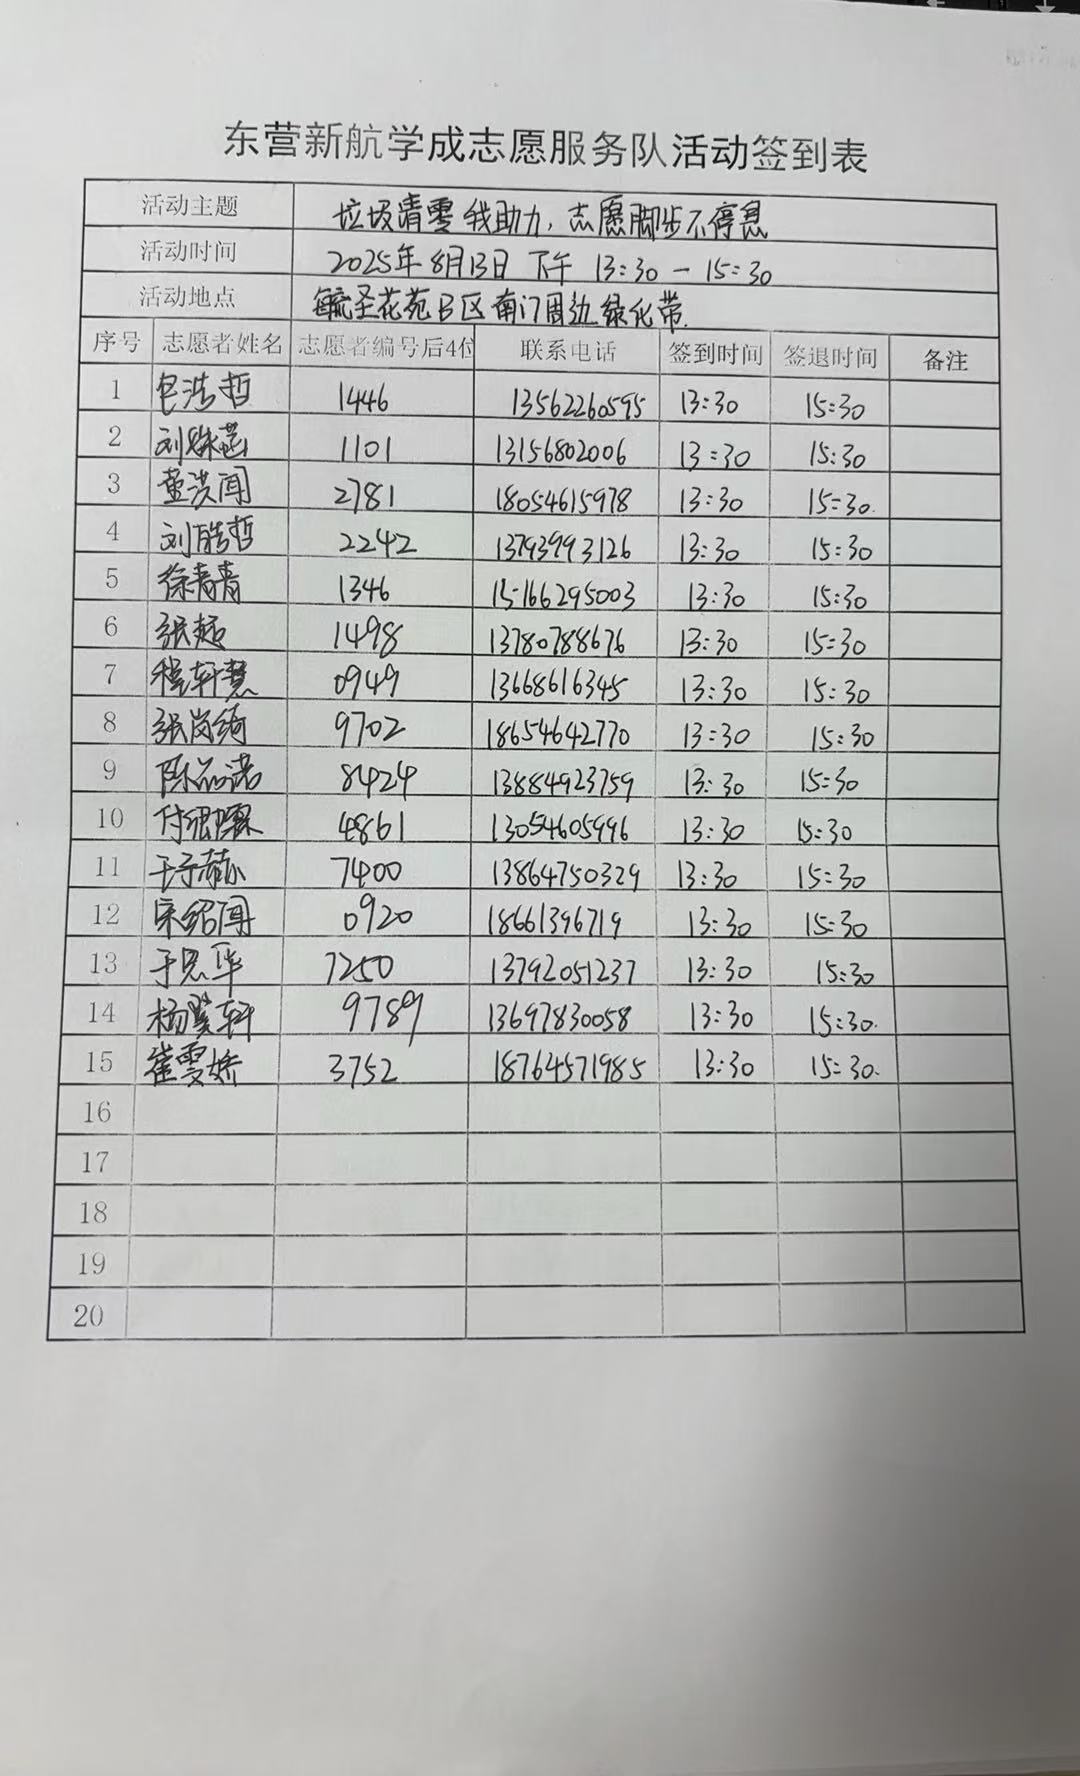 东营新航学成志愿服务队活动签到表
活动主题 垃圾清零我助力,志愿脚步不停息
活动时间 2025年8月13日 下午 13:30-15:30
活动地点 毓圣花苑B区南门周边绿化带.
序号 志愿者姓名 志愿者编号后4位 联系电话 签到时间 签退时间 备注
1 包浩哲 1446 13562260595 13:30 15:30
2 刘姝菡 1101 13156802006 13:30 15:30
3 董洪闻 2781 18054615978 13:30 15:30.
4 刘皓哲 2242 13793993126 13:30 15:30
5 徐青青 1346 15166295003 13:30 15:30
6 张超 1498 13780788676 13:30 15:30
7 程轩慧 0949 13668616345 13:30 15:30
8 张岚绮 9702 18654642770 13:30 15:30
9 陈品诺 8424 13884923759 13:30 15:30
10 4861 13054605996 13:30 15:30
11 王子赫 7400 13864750329 13:30 15:30
12 宋绍闻 0920 18661396719 13:30 15:30
13 于思华 7250 13792051237 13:30 15:30
14 9789 13697830058 13:30 15:30.
15 崔雯娇 3752 18764571985 13:30 15:30.
16
17
18
19
20